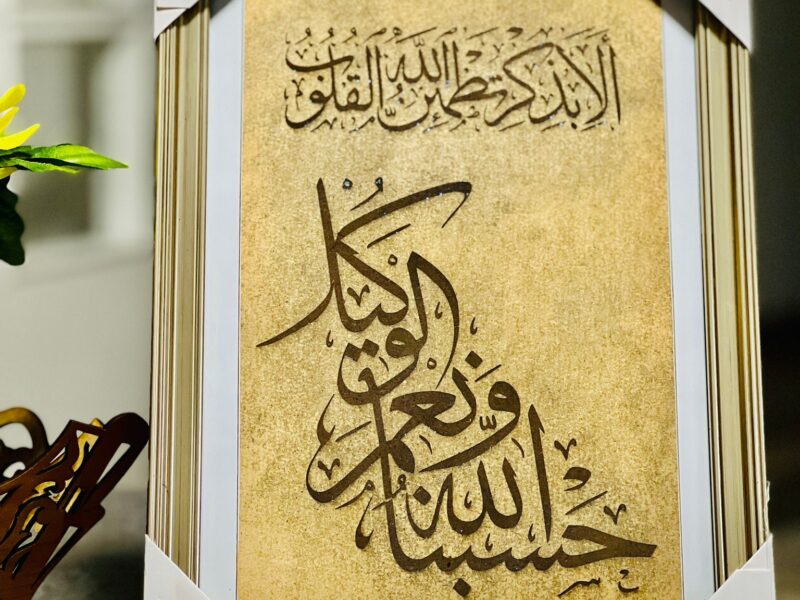 أَلَا بِذِكْرِ اللَّهِ تَطْمَئِنُّ الْقُلُوبُ
حسبنا الله ونعم الوكيل